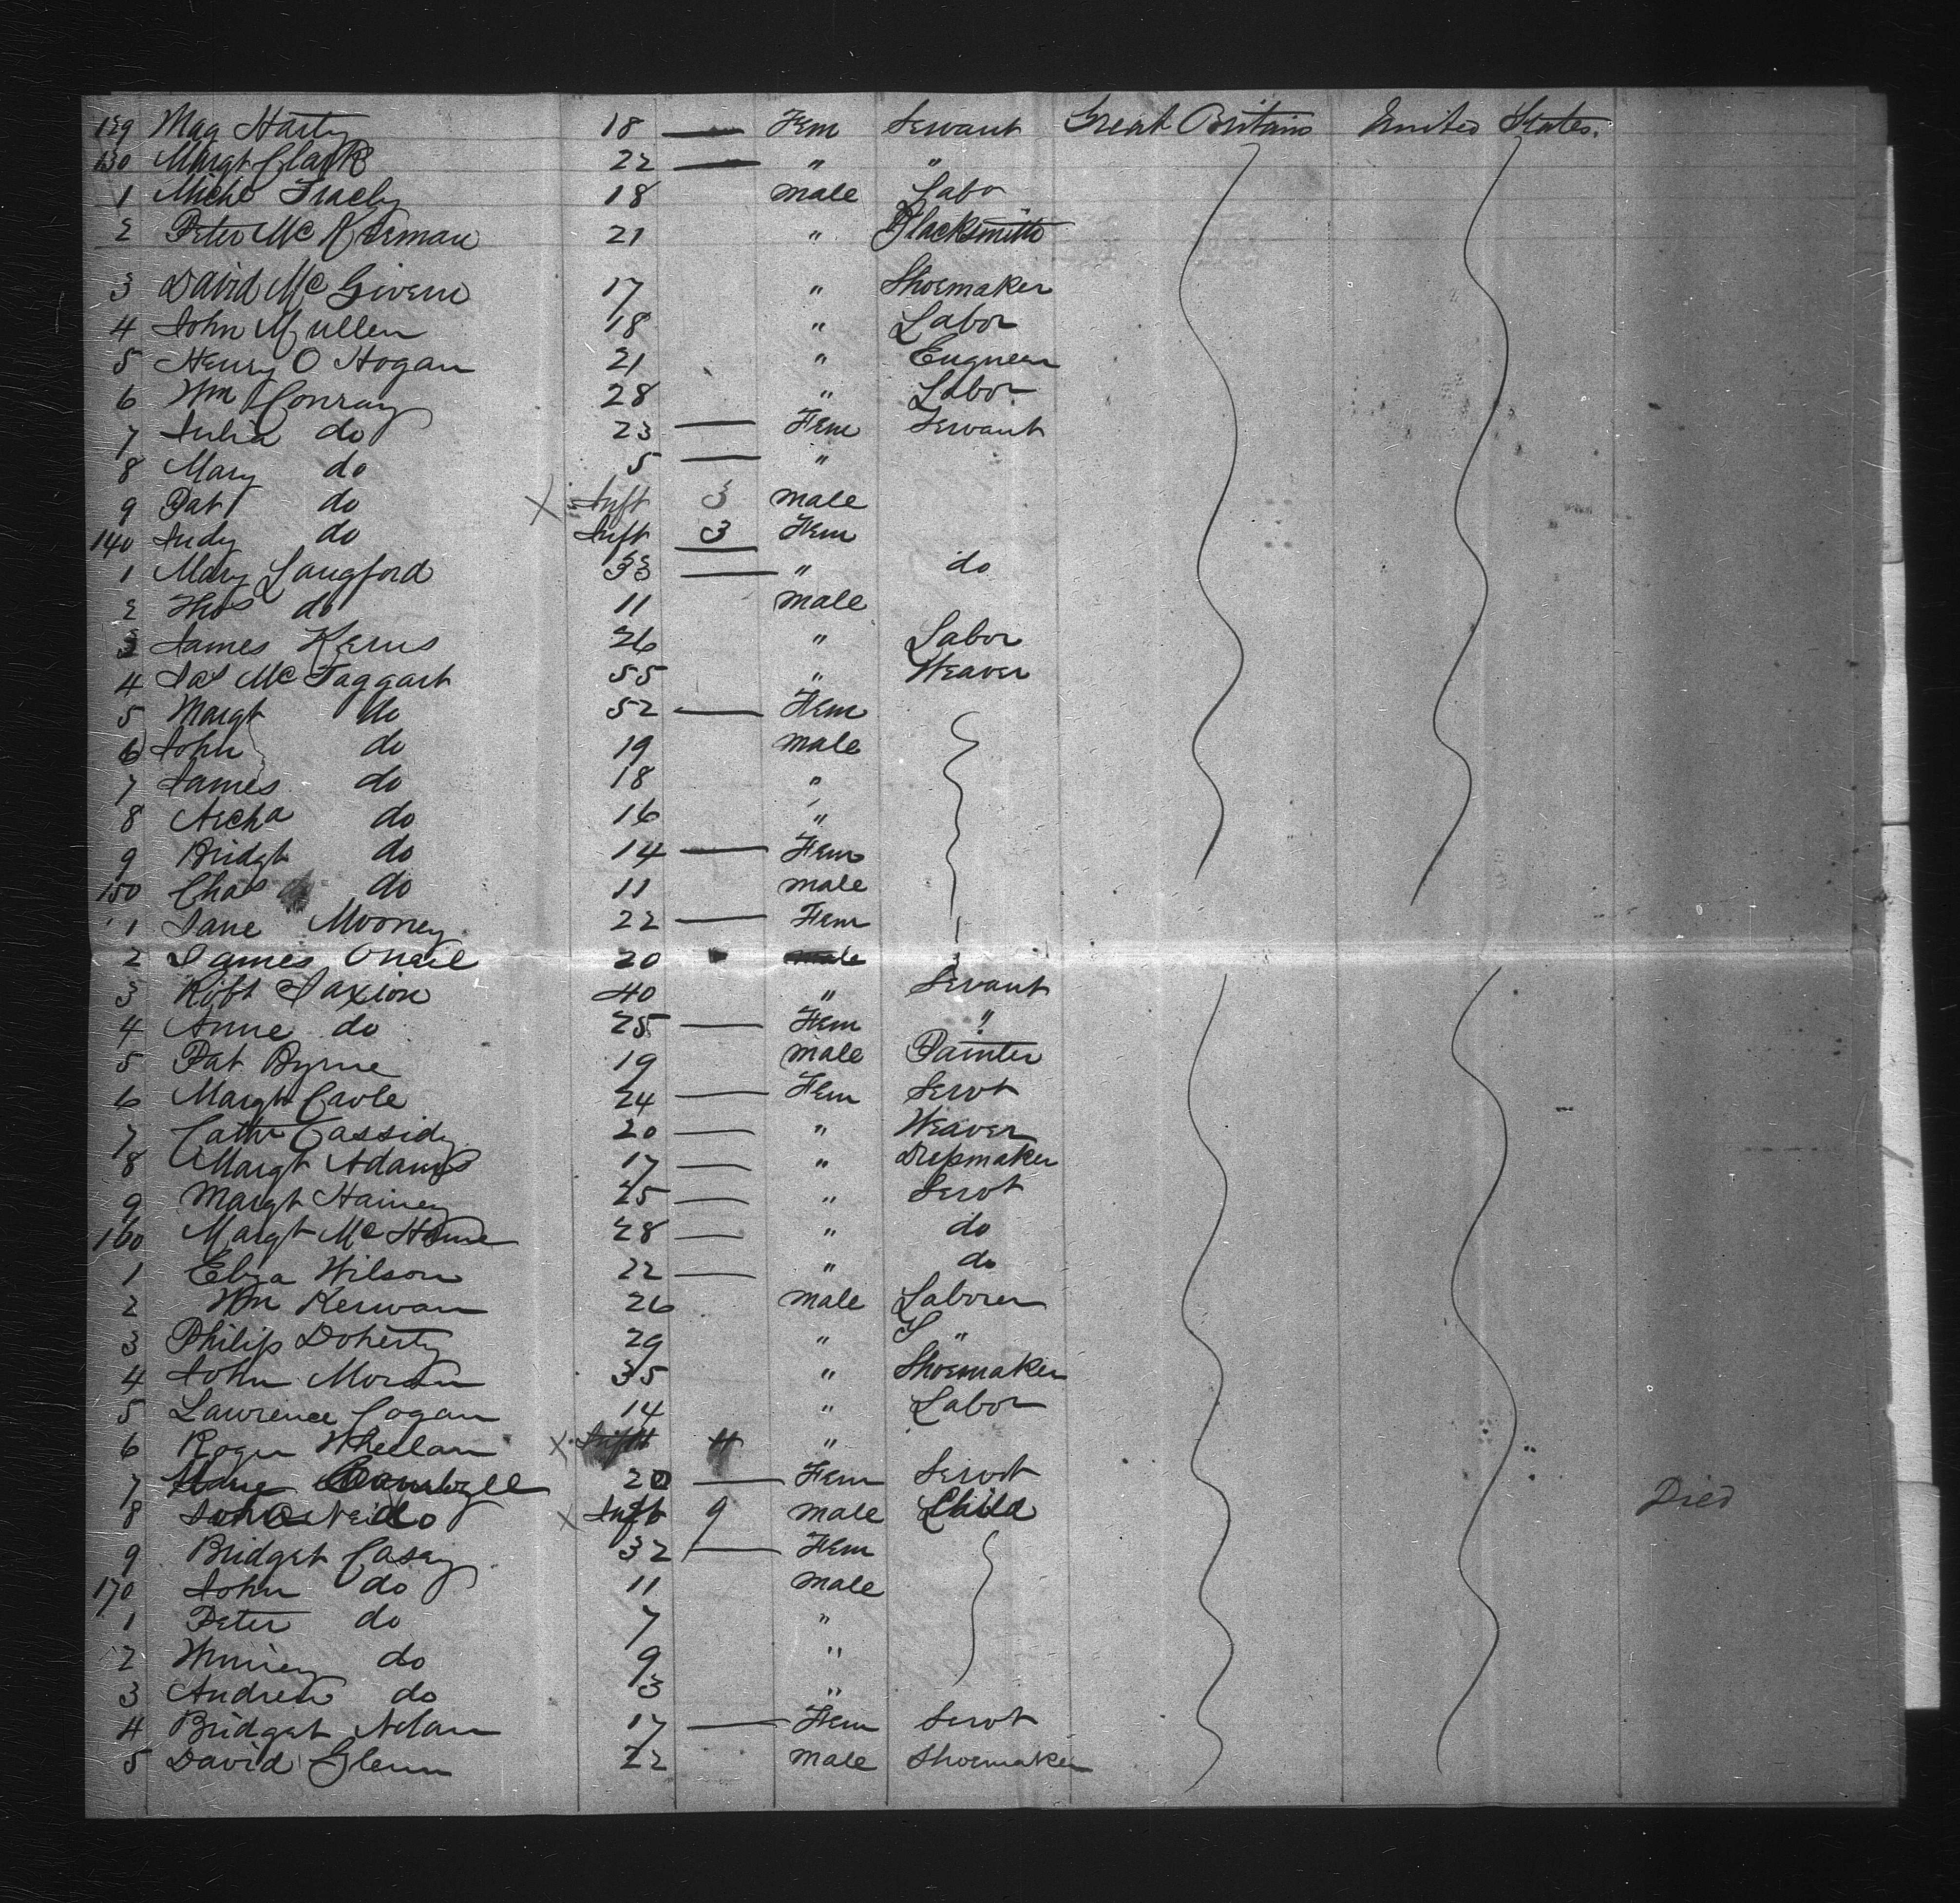 129 Mag Harty 18 — Fem Servant Great Britain United States.
130 Margt Clark 22 — " "
1 Michl Tracey 18 male Labor
2 Peter McKiernan 21 " Blacksmith
3 David McGivern 17 " Shoemaker
4 John Mullen 18 " Labor
5 Henry O Hogan 21 " Engineer
6 Wm Conray 28 " Labor
7 Julia do 23 — Fem Servant
8 Mary do 5 — "
9 Pat do X Inft 3 male
140 Judy do Inft 3 Fem
1 Mary Langford 33 — " do
2 Thos do 11 male
3 James Kerns 26 " Labor
4 Jas McTaggart 55 " Weaver
5 Margt do 52 — Fem
6 John do 19 male
7 James do 18 "
8 Archd do 16 "
9 Bridgt do 14 — Fem
150 Chas do 11 male
1 Jane Mooney 22 — Fem
2 James Oneil 20 male
3 Robt Saxion 40 " Servant
4 Anne do 25 — Fem "
5 Pat Byrne 19 male Painter
6 Margt Carole 24 — Fem Servt
7 Cathe Cassidy 20 — " Weaver
8 Margt Adams 17 — " Dressmaker
9 Margt Hainey 25 — " Servt
160 Margt Mc 28 — " do
1 Eliza Wilson 22 — " do
2 Wm Kerwan 26 male Laborer
3 Philip Doherty 29 " "
4 John Moran 35 " Shoemaker
5 Lawrence Cogan 14 " Labor
6 Roger Wheelan X "
7 20 — Fem Servt
8 X Inft 9 male Child Died
9 Bridget Casey 32 — Fem
170 John do 11 male
1 Peter do 7 "
2 Winney do 9 "
3 Andrew do 3 "
4 Bridget Nolan 17 — Fem Servt
5 David Glenn 22 male Shoemaker